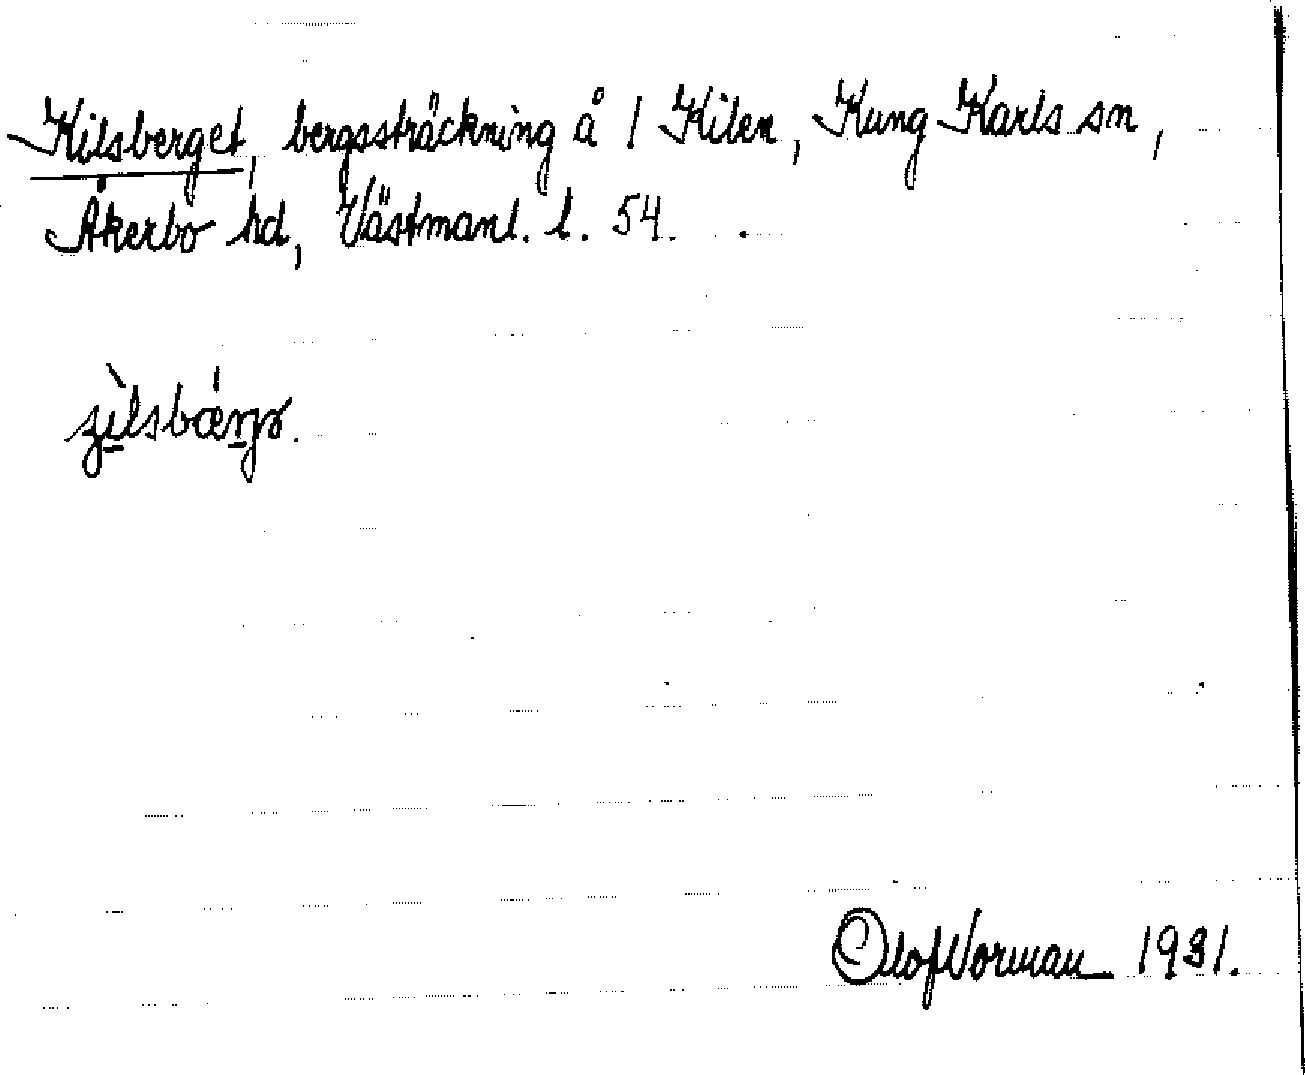 Kilsberget, bergssträckning å 1 Kilen, Kung Karls sn,
Åkerbo hd, Västmanl. l. 54.
Olof Norman 1931.